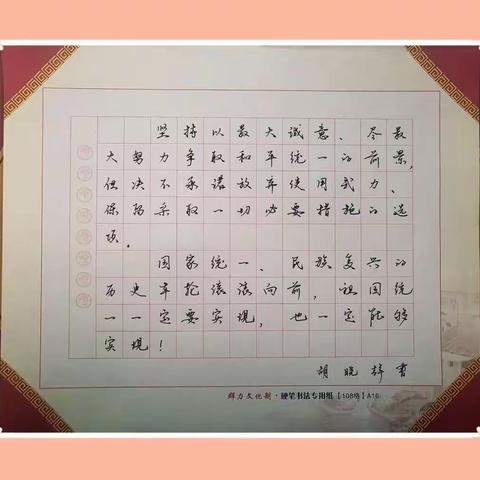 坚持以最大诚意、尽最
大努力争取和平统一的前景，
但决不承诺放弃使用武力、
保留采取一切必要措施的选
项。
国家统一、民族复兴的
历史车轮滚滚向前，祖国统
一一定要实现，也一定能够
实现！
胡晓梓书
群力文化制·硬笔书法专用纸【108格】A16